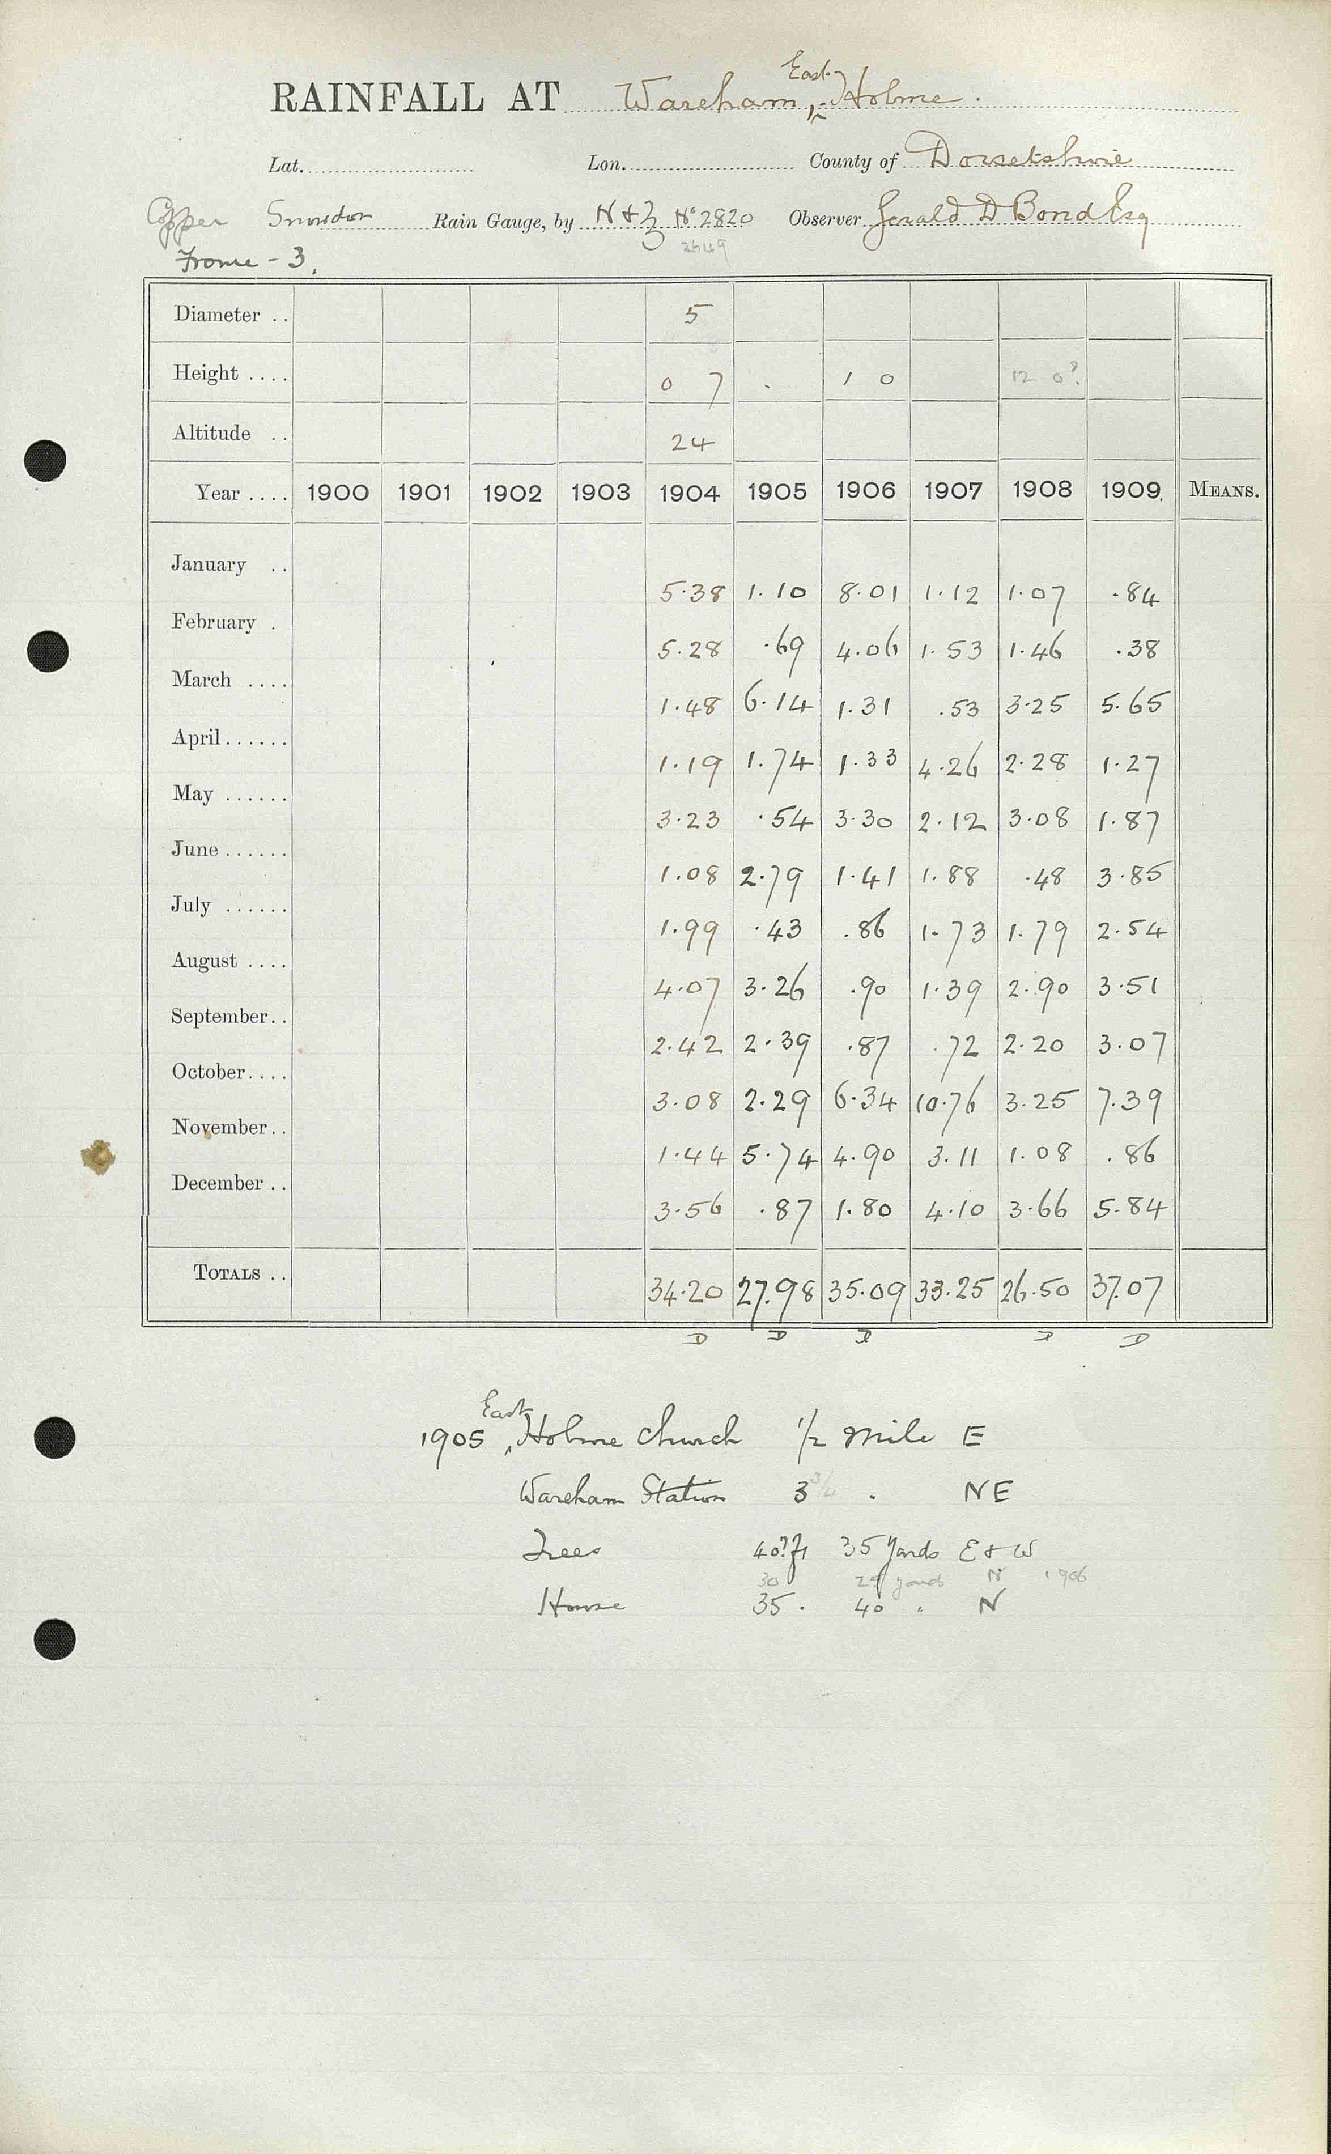 RAINFALL AT Wareham, East Holme.
Lat. Lon. County of Dorsetshire
Copper Snowdon Rain Gauge, by N & Z No 2820 Observer Gerald D Bond Esq
Frome - 3.
Diameter .. 5
Height .... 0 7 . 1 0 12 0?
Altitude .. 24
Year .... 1900 1901 1902 1903 1904 1905 1906 1907 1908 1909 MEANS.
January .. 5.38 1.10 8.01 1.12 1.07 .84
February . 5.28 .69 4.06 1.53 1.46 .38
March .... 1.48 6.14 1.31 .53 3.25 5.65
April...... 1.19 1.74 1.33 4.26 2.28 1.27
May ...... 3.23 .54 3.30 2.12 3.08 1.87
June...... 1.08 2.79 1.41 1.88 .48 3.85
July ...... 1.99 .43 .86 1.73 1.79 2.54
August .... 4.07 3.26 .90 1.39 2.90 3.51
September.. 2.42 2.39 .87 .72 2.20 3.07
October.... 3.08 2.29 6.34 10.76 3.25 7.39
November.. 1.44 5.74 4.90 3.11 1.08 .86
December .. 3.56 .87 1.80 4.10 3.66 5.84
TOTALS .. 34.20 27.98 35.09 33.25 26.50 37.07
D D D D D
1905 East Holme Church 1/2 mile E
Wareham Station 3 3/4 . NE
Trees 40? ft 35 yards E & W
30 29 yards N 1906
House 35 . 40 . N